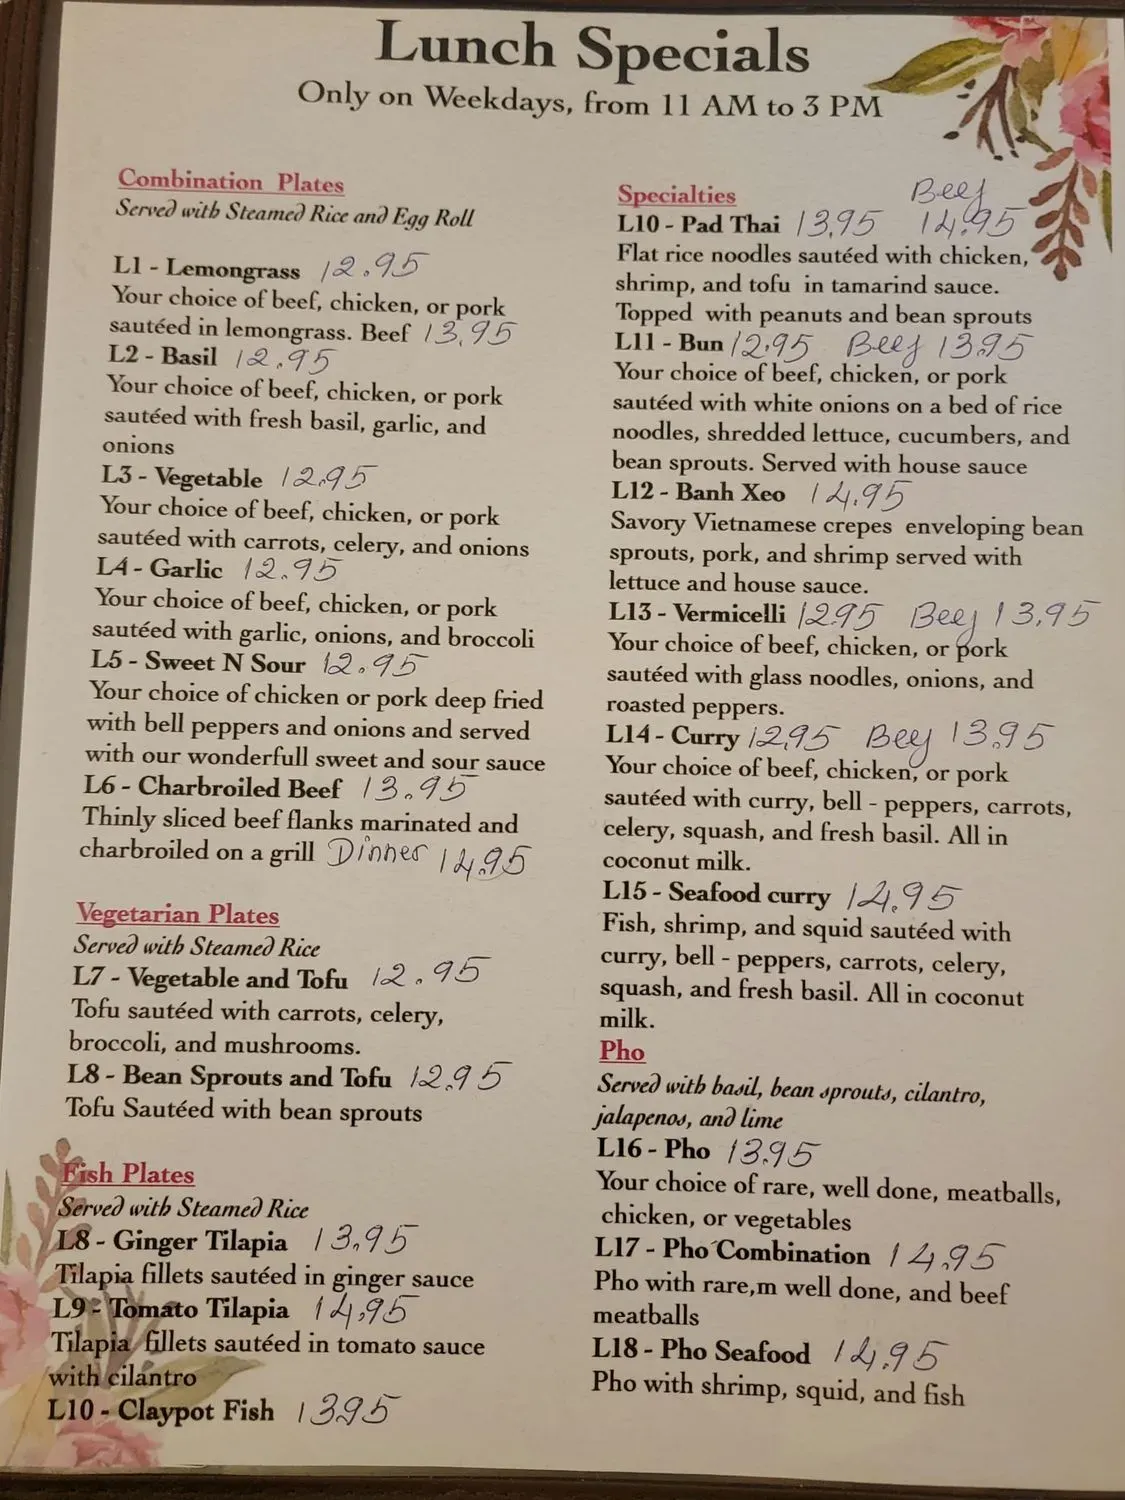 Lunch Specials
Only on Weekdays, from 11 AM to 3 PM
Combination Plates
Served with Steamed Rice and Egg Roll
L1 - Lemongrass 12.95
Your choice of beef, chicken, or pork
sautéed in lemongrass. Beef 13.95
L2 - Basil 12.95
Your choice of beef, chicken, or pork
sautéed with fresh basil, garlic, and
onions
L3 - Vegetable 12.95
Your choice of beef, chicken, or pork
sautéed with carrots, celery, and onions
L4 - Garlic 12.95
Your choice of beef, chicken, or pork
sautéed with garlic, onions, and broccoli
L5 - Sweet N Sour 12.95
Your choice of chicken or pork deep fried
with bell peppers and onions and served
with our wonderfull sweet and sour sauce
L6 - Charbroiled Beef 13.95
Thinly sliced beef flanks marinated and
charbroiled on a grill Dinner 14.95
Vegetarian Plates
Served with Steamed Rice
L7 - Vegetable and Tofu 12.95
Tofu sautéed with carrots, celery,
broccoli, and mushrooms.
L8 - Bean Sprouts and Tofu 12.95
Tofu Sautéed with bean sprouts
Fish Plates
Served with Steamed Rice
L8 - Ginger Tilapia 13.95
Tilapia fillets sautéed in ginger sauce
L9 - Tomato Tilapia 14.95
Tilapia fillets sautéed in tomato sauce
with cilantro
L10 - Claypot Fish 13.95
Specialties Beef
L10 - Pad Thai 13.95 14.95
Flat rice noodles sautéed with chicken,
shrimp, and tofu in tamarind sauce.
Topped with peanuts and bean sprouts
L11 - Bun 12.95 Beef 13.95
Your choice of beef, chicken, or pork
sautéed with white onions on a bed of rice
noodles, shredded lettuce, cucumbers, and
bean sprouts. Served with house sauce
L12 - Banh Xeo 14.95
Savory Vietnamese crepes enveloping bean
sprouts, pork, and shrimp served with
lettuce and house sauce.
L13 - Vermicelli 12.95 Beef 13.95
Your choice of beef, chicken, or pork
sautéed with glass noodles, onions, and
roasted peppers.
L14 - Curry 12.95 Beef 13.95
Your choice of beef, chicken, or pork
sautéed with curry, bell - peppers, carrots,
celery, squash, and fresh basil. All in
coconut milk.
L15 - Seafood curry 14.95
Fish, shrimp, and squid sautéed with
curry, bell - peppers, carrots, celery,
squash, and fresh basil. All in coconut
milk.
Pho
Served with basil, bean sprouts, cilantro,
jalapenos, and lime
L16 - Pho 13.95
Your choice of rare, well done, meatballs,
chicken, or vegetables
L17 - Pho Combination 14.95
Pho with rare,m well done, and beef
meatballs
L18 - Pho Seafood 14.95
Pho with shrimp, squid, and fish